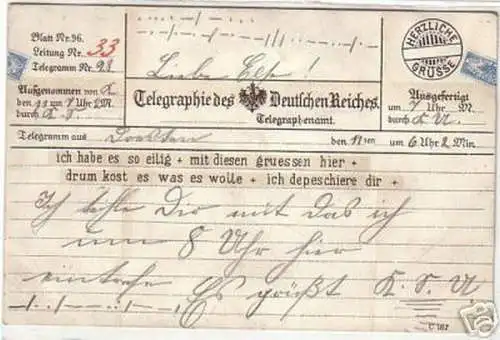 Blatt Nr. 96.
Leitung Nr. 33
Telegramm Nr. 98
Aufgenommen von K.
den 11 um 7 Uhr M.
durch K. T.
Liebe Else!
HERZLICHE
GRÜSSE
Telegraphie des Deutschen Reiches.
Telegraphenamt.
Ausgefertigt
um 7 Uhr M.
durch K. U.
Telegramm aus den 11ten um 6 Uhr 2 Min.
ich habe es so eilig + mit diesen gruessen hier +
drum kost es was es wolle + ich depeschiere dir +
Ich teile Dir mit das ich
um 8 Uhr hier
Es grüßt K. S. U.
C 167